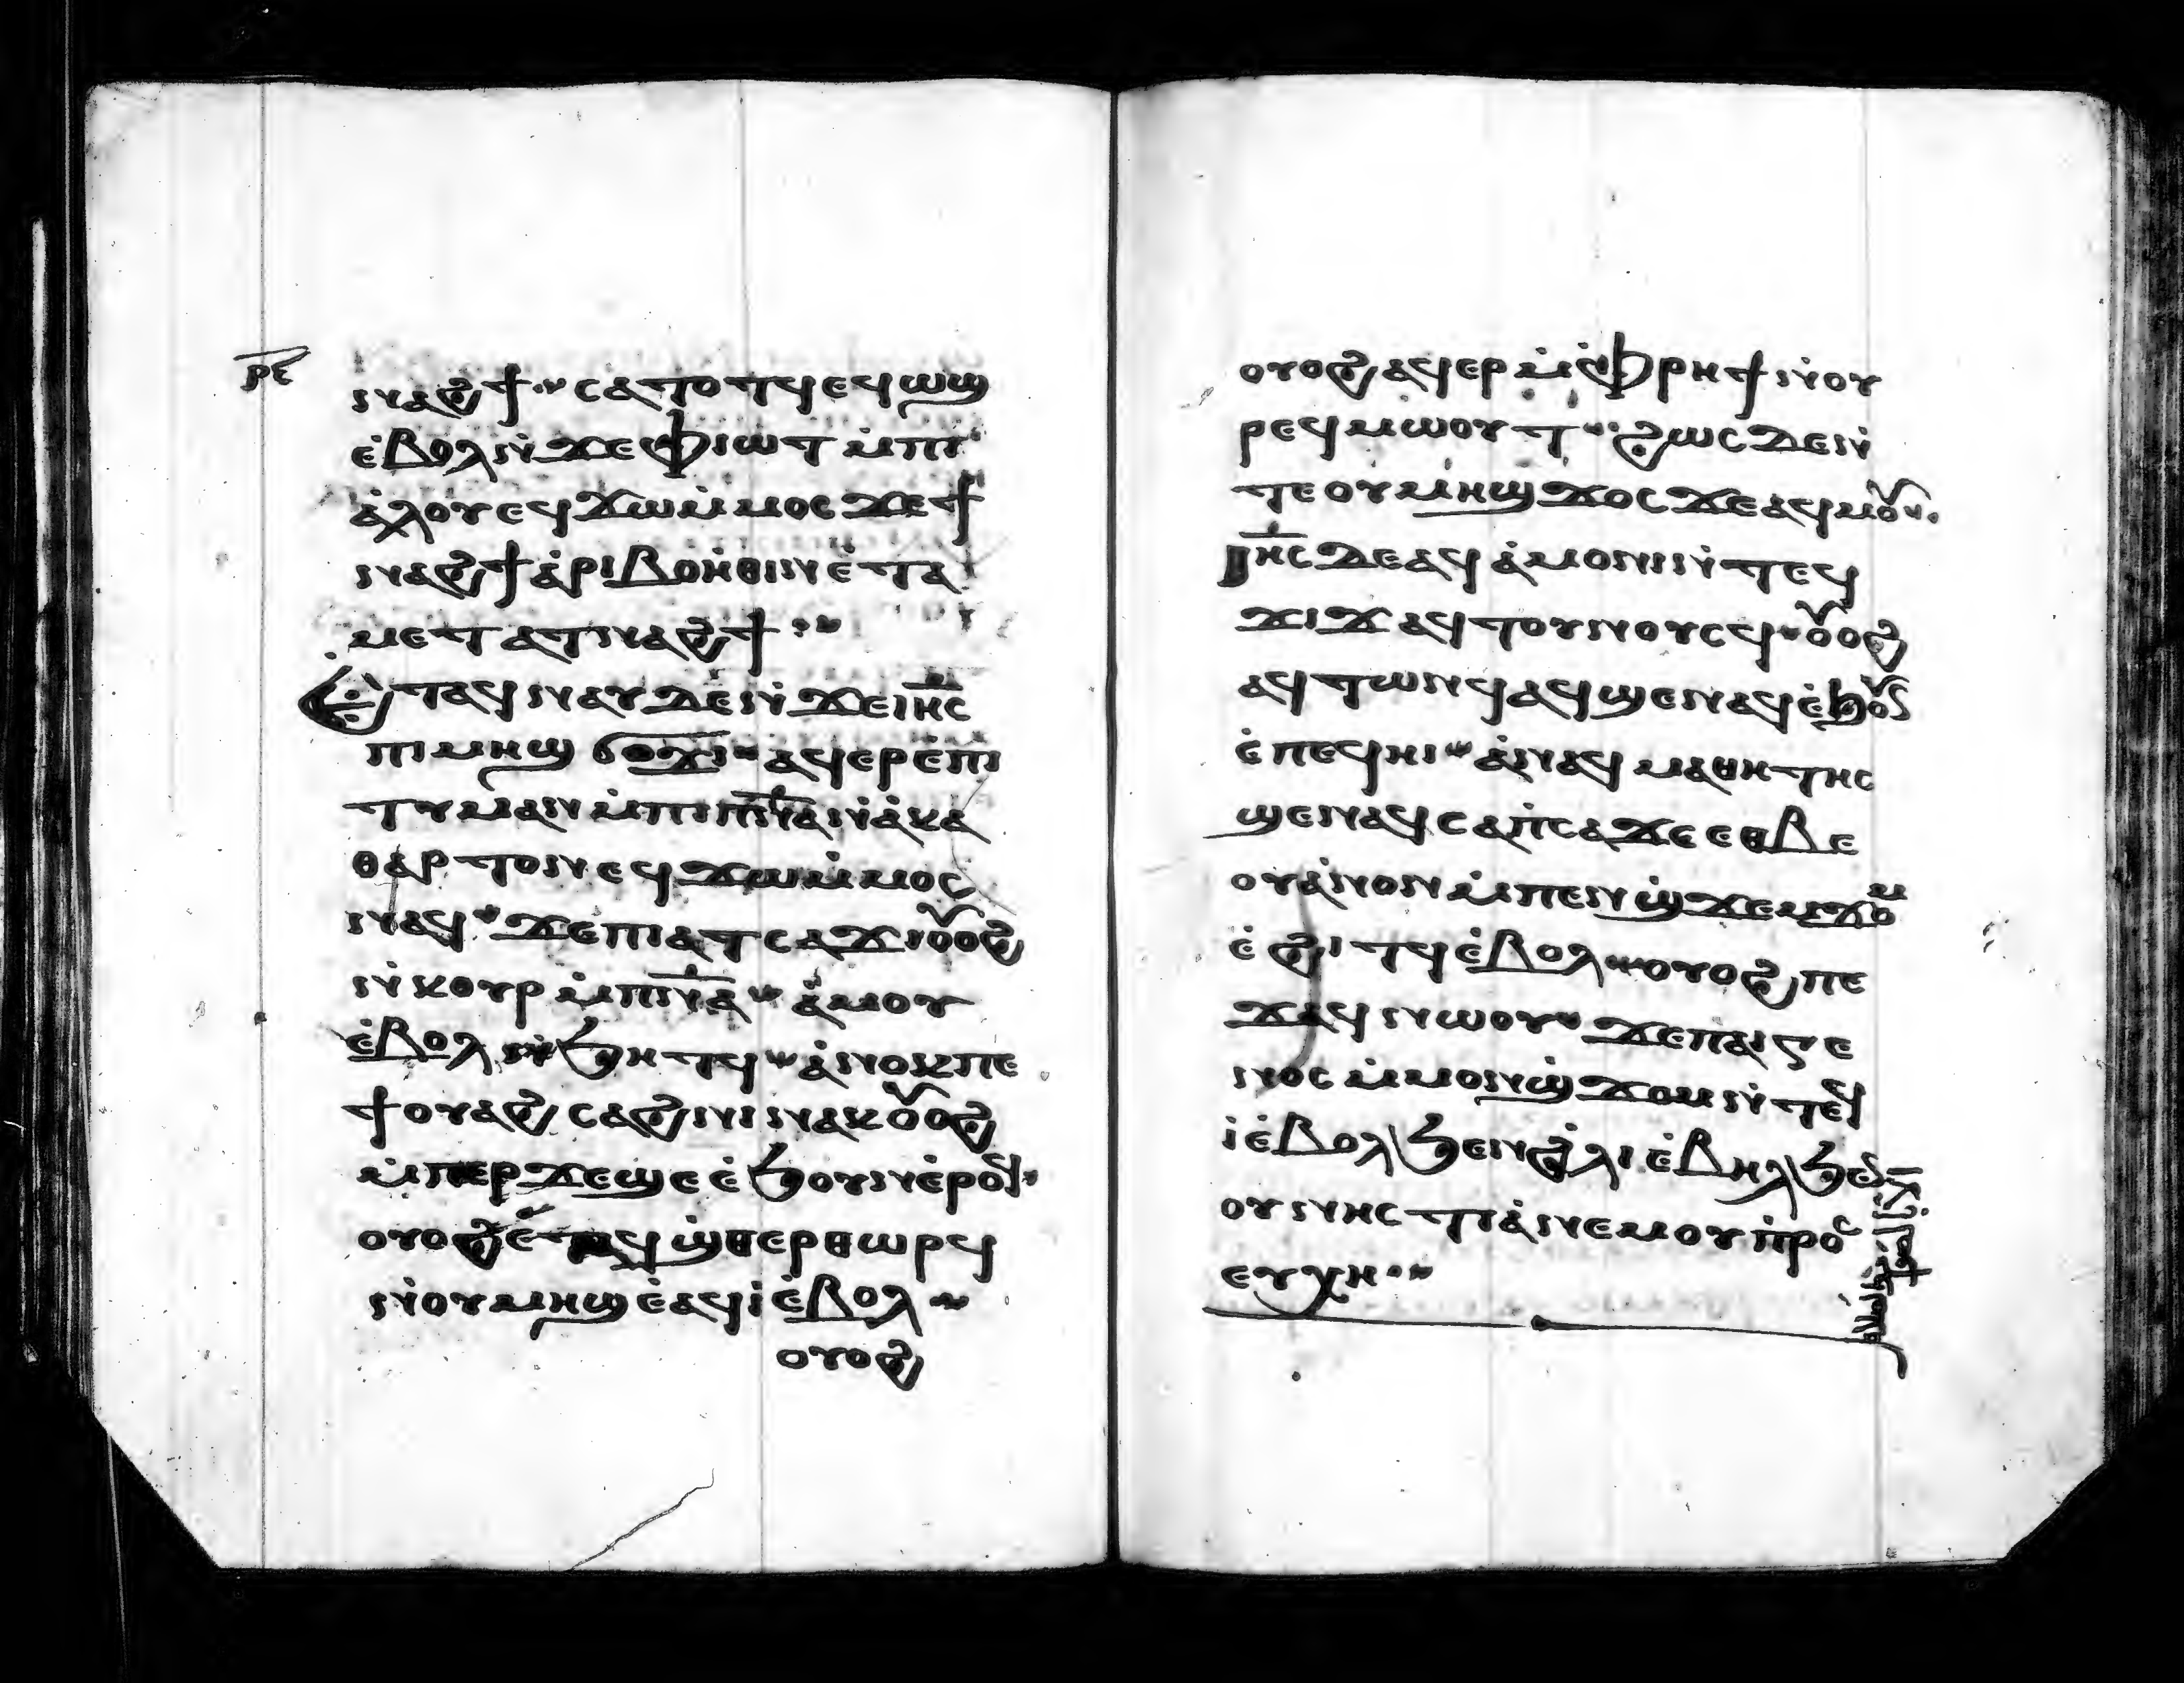 ⲣⲉ
ⲛⲁϩϯ ⲥⲁⲧⲟⲧϥ ⲉϥⲱϣ
ⲉ̀ⲃⲟⲗ ⲛ̀ϫⲉ ⲫⲓⲱⲧ ⲙ̀ⲡⲓ
ⲁ̀ⲗⲟⲩ ⲉϥϫⲱ ⲙ̀ⲙⲟⲥ ϫⲉ ϯ
ⲛⲁϩϯ ⲁ̀ⲣⲓⲃⲟⲏ̀ⲑⲓⲛ ⲉ̀ⲧⲁ
ⲙⲉⲧⲁⲧⲛⲁϩϯ
ⲉ̀ⲧⲁϥⲛⲁⲩ ⲇⲉ ⲛ̀ϫⲉ ⲓⲏ̅ⲥ
ⲡⲓⲙⲏϣ ϭⲟϫⲓ ⲁϥⲉⲣⲉ̀ⲡⲓ
ⲧⲩⲙⲁⲛ ⲙ̀ⲡⲓⲡ̅ⲛ̅ⲁ ⲛ̀ⲁ̀ⲕⲁ
ⲑⲁⲣⲧⲟⲛ ⲉϥϫⲱ ⲙ̀ⲙⲟⲥ
ⲛⲁϥ ϫⲉ ⲡⲓⲁⲧⲥⲁϫⲓ ⲟⲩⲟϩ
ⲛ̀ⲕⲟⲩⲣ ⲙ̀ⲡ̅ⲛ̅ⲁ ⲁ̀ⲙⲟⲩ
ⲉ̀ⲃⲟⲗ ⲛ̀ϧⲏⲧϥ ⲁ̀ⲛⲟⲕ ⲡⲉ
ϯⲟⲩⲁϩⲥⲁϩⲛⲓ ⲛⲁⲕ ⲟⲩⲟϩ
ⲙ̀ⲡⲉⲣϫⲉ ϣⲉ ⲉ̀ϧⲟⲩⲛ ⲉ̀ⲣⲟϥ
ⲟⲩⲟϩ ⲉ̀ⲧⲁϥϣ̀ⲑⲉⲣⲑⲱⲣϥ
ⲛ̀ⲟⲩⲙⲏϣ ⲉ̀ⲁϥⲓ̀ ⲉ̀ⲃⲟⲗ
ⲟⲩⲟϩ
ⲟⲩⲟϩ ⲁϥⲉⲣ ⲙ̀ⲫ̀ⲣⲏϯ ⲛ̀ⲟⲩ
ⲣⲉϥⲙⲱⲟⲩⲧ ϩⲱⲥ ⲇⲉ ⲛ̀
ⲧⲉ ⲟⲩⲙⲏϣ ϫⲟⲥ ϫⲉ ⲁϥⲙⲟⲩ
ⲓⲏ̅ⲥ ⲇⲉ ⲁϥⲁ̀ⲙⲟⲛⲓ ⲛ̀ⲧⲉϥ
ϫⲓϫ ⲁϥⲧⲟⲩⲛⲟⲩⲥϥ ⲟⲩⲟϩ
ⲁϥⲧⲱⲛϥ ⲁϥϣⲉⲛⲁϥ ⲉ̀ϧⲟⲩⲛ
ⲉ̀ⲡⲉϥⲏⲓ ⲁ̀ⲛⲁϥⲙⲁⲑⲏⲧⲏⲥ
ϣⲉⲛⲁϥ ⲥⲁⲡ̀ⲥⲁ ϫⲉ ⲉⲑⲃⲉ
ⲟⲩ ⲁ̀ⲛⲟⲛ ⲙ̀ⲡⲉⲛϣ̀ϫⲉⲙϫⲟⲙ
ⲉ̀ϩⲓⲧϥ ⲉ̀ⲃⲟⲗ ⲟⲩⲟϩ ⲡⲉ
ϫⲁϥ ⲛⲱⲟⲩ ϫⲉ ⲡⲁⲓⲅⲉ
ⲛⲟⲥ ⲙ̀ⲙⲟⲛϣ̀ϫⲟⲙ ⲛ̀ⲧⲉϥ
ⲓ̀ ⲉ̀ⲃⲟⲗ ϧⲉⲛ ϩ̀ⲗⲓ ⲉ̀ⲃⲏⲗ ϧⲉⲛ
ⲟⲩⲛⲏⲥⲧⲓⲁ̀ ⲛⲉⲙ ⲟⲩⲡ̀ⲣⲟⲥ
ⲉⲩⲭⲏ